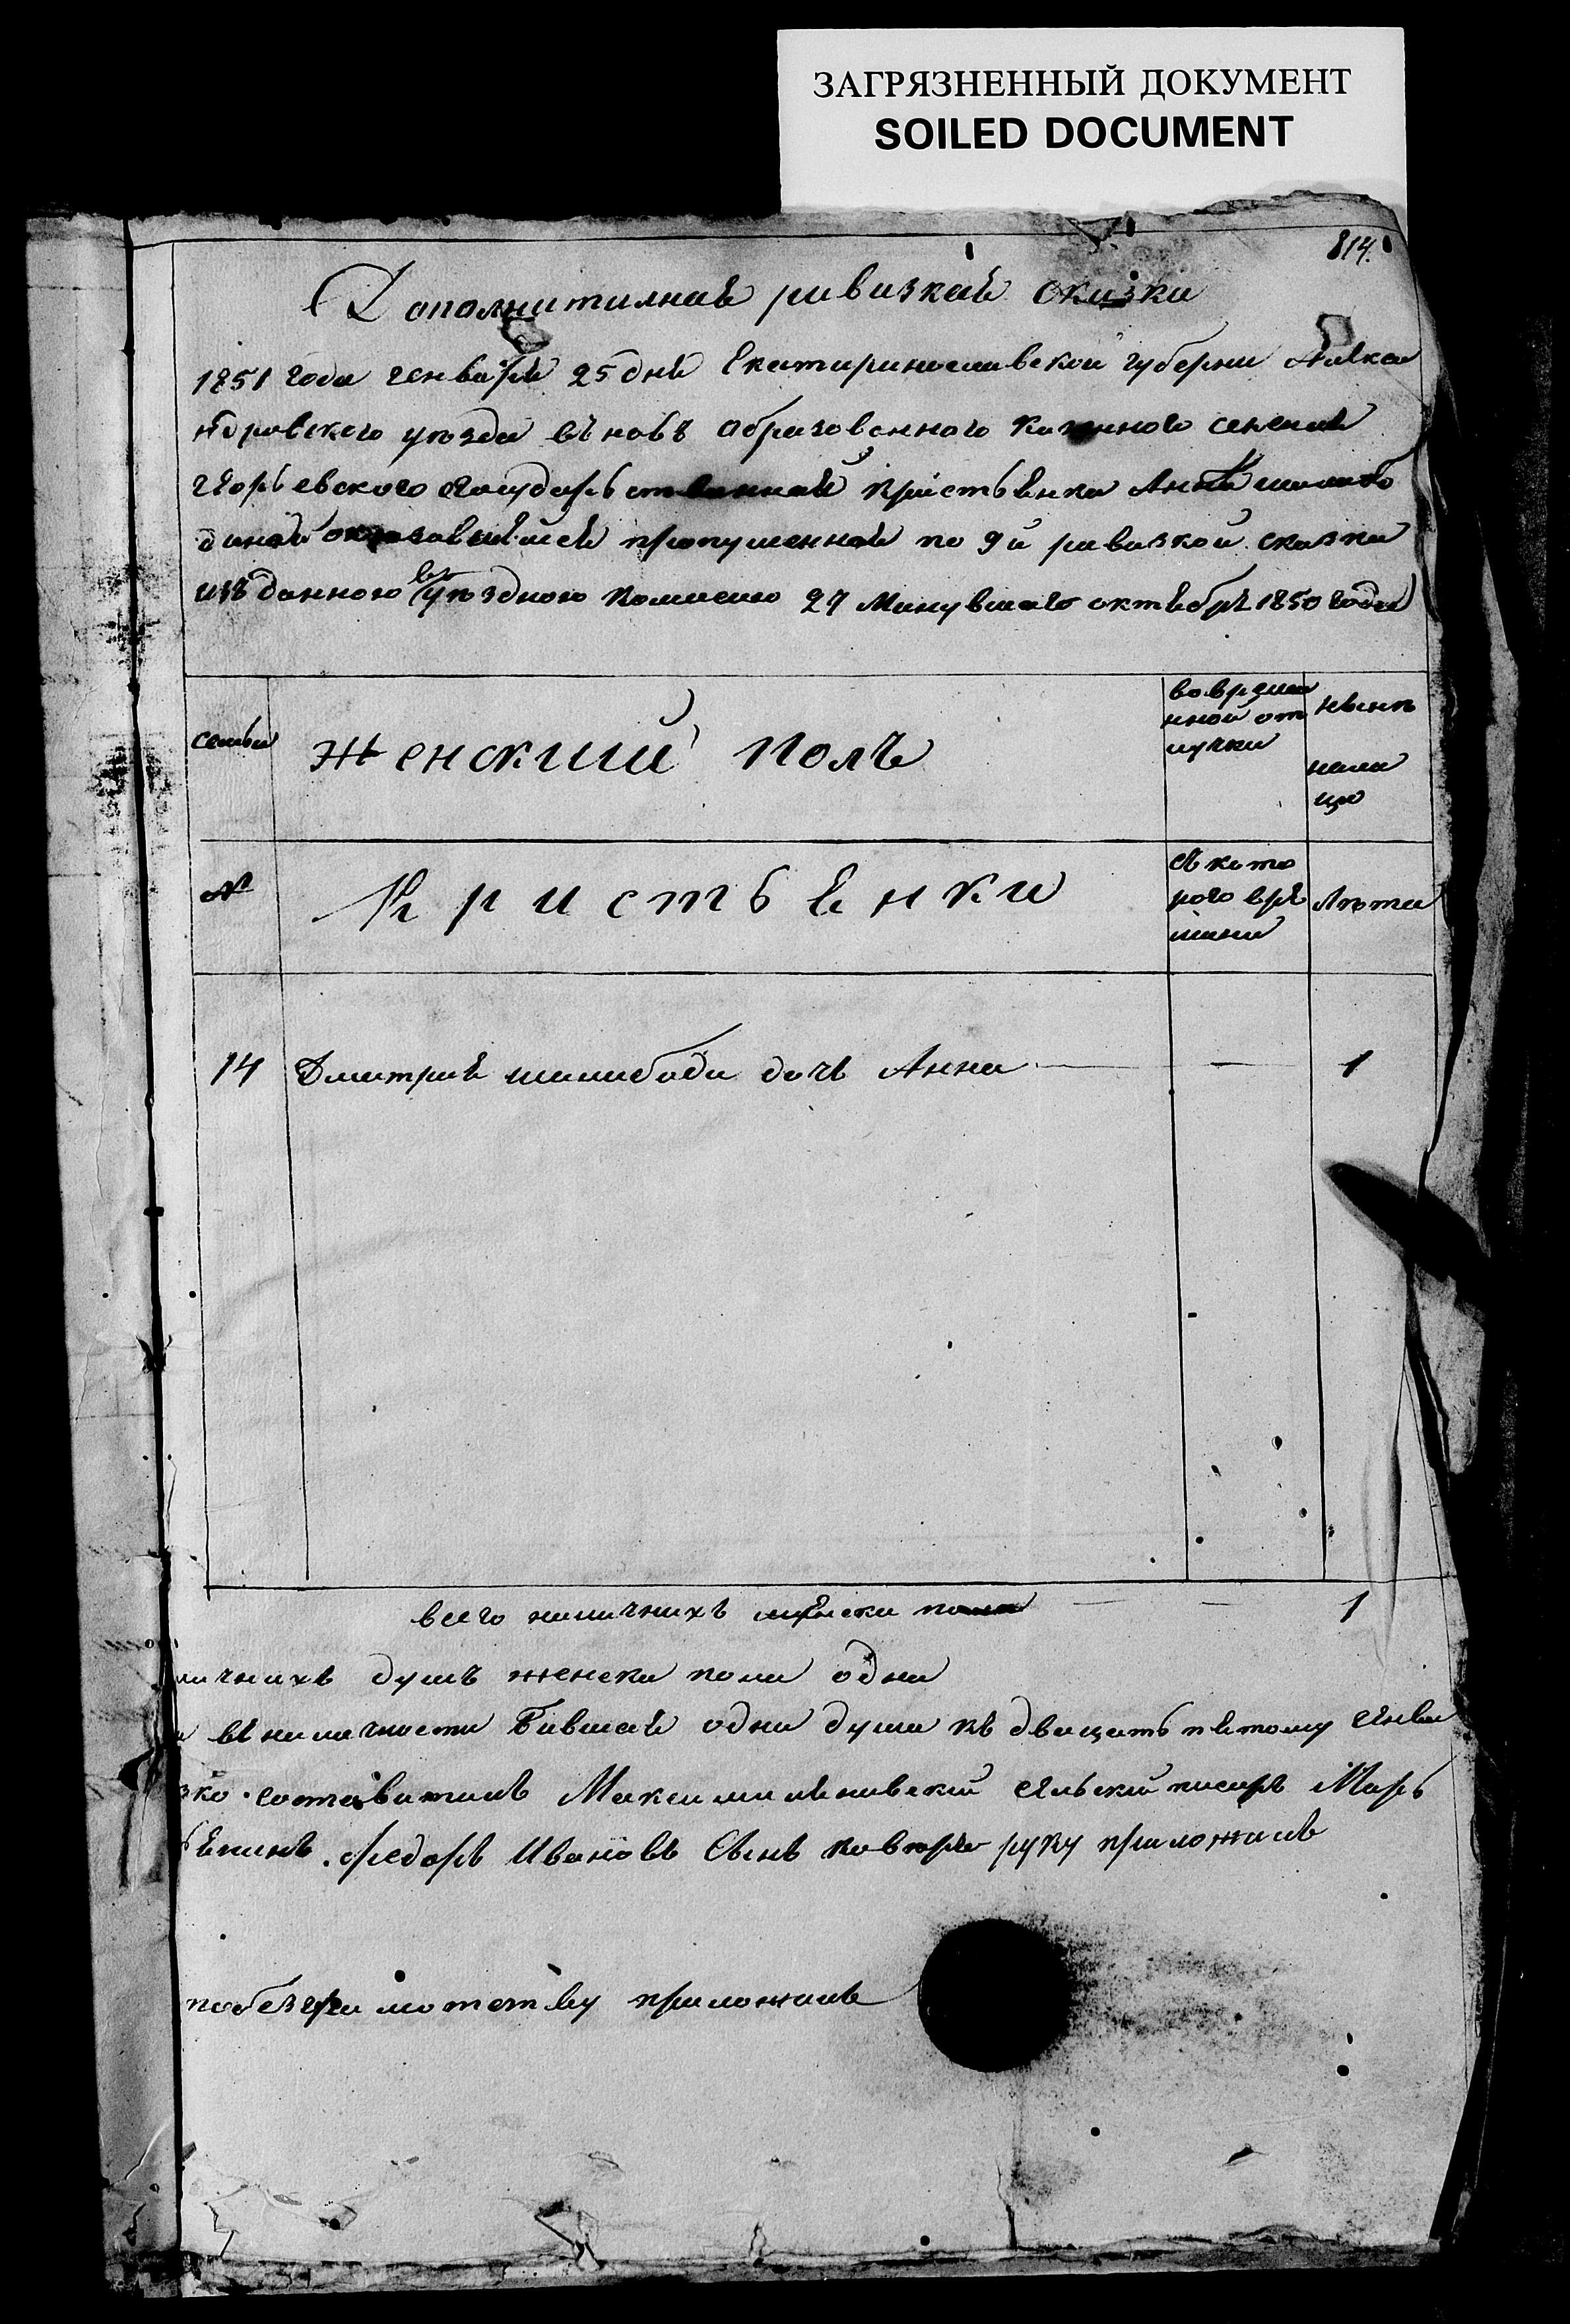 ЗАГРЯЗНЕННЫЙ ДОКУМЕНТ
SOILED DOCUMENT
814.
Дополнителная ривизкая сказка
1851 года генваря 25 дня Екатеринославской губерни Алекса
ндровского уѣзда въ новъ образованного казенного селения
государьственной кристьянка Анна шалабо
диной оказавшейся пропущенной по 9й ривизкой сказки
изъданною в уѣздною комисию 27 минувшаго октября 1850 года
семьи
Женский полъ
во времян
ной от
лучки
нынѣ
нали
цо
№
Кристьянки
съ кото
рого вре
мини
Лѣта
14 Дмитрия шалабоди дочь Анна — — 1
всего наличнихъ женска пола — — 1
личнихъ душъ женска пола одна
въ наличности бившая одна душа къ двацать пятому Янва
составитель Максимиляновский сельский писарь Марь
федоръ Ивановъ Сынъ руку приложилъ
по безграмотству приложилъ